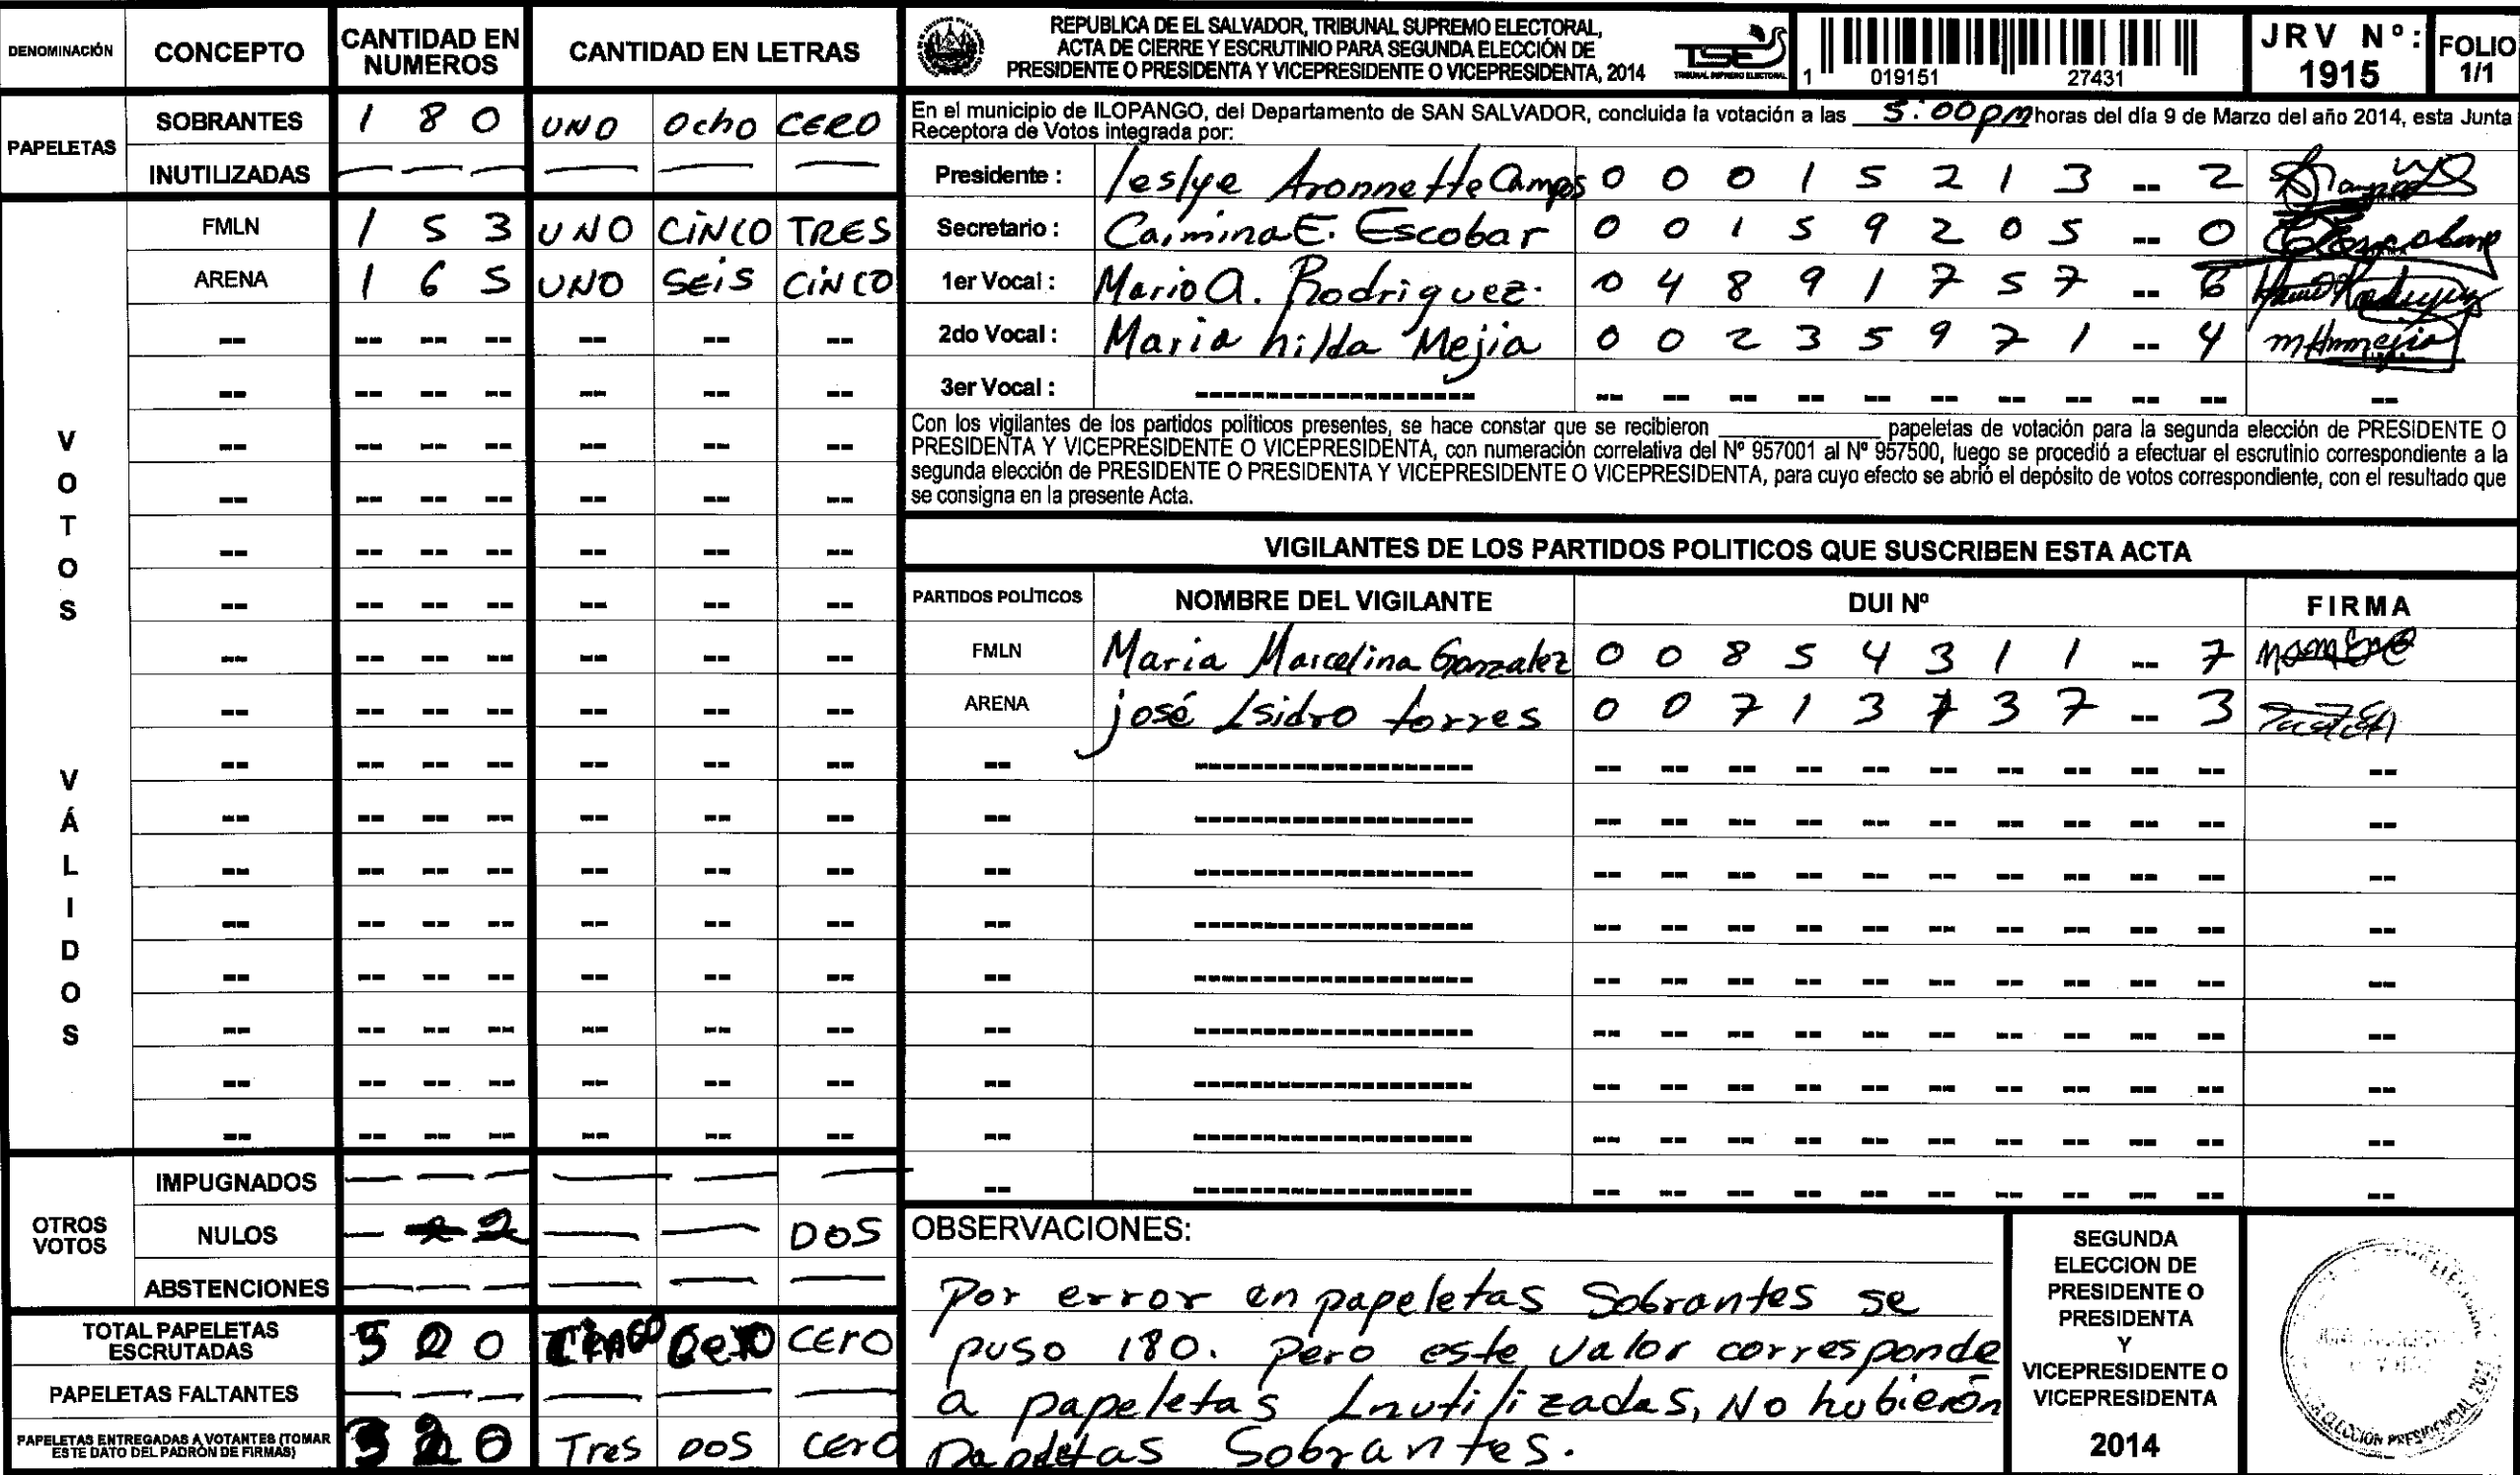 DENOMINACIÓN CONCEPTO CANTIDAD EN NUMEROS CANTIDAD EN LETRAS
PAPELETAS
SOBRANTES 1 8 0 UNO Ocho CERO
INUTILIZADAS — — — — — —
VOTOS VÁLIDOS
FMLN 1 5 3 UNO CiNCO TRES
ARENA 1 6 5 UNO SEiS CiNCO
OTROS VOTOS
IMPUGNADOS — — — — — —
NULOS — 2 — — DOS
ABSTENCIONES — — — — — —
TOTAL PAPELETAS ESCRUTADAS 5 0 0 Cero CErO
PAPELETAS FALTANTES — — — — — —
PAPELETAS ENTREGADAS A VOTANTES (TOMAR ESTE DATO DEL PADRÓN DE FIRMAS) 3 2 0 Tres DOS CerO
REPUBLICA DE EL SALVADOR, TRIBUNAL SUPREMO ELECTORAL,
ACTA DE CIERRE Y ESCRUTINIO PARA SEGUNDA ELECCIÓN DE
PRESIDENTE O PRESIDENTA Y VICEPRESIDENTE O VICEPRESIDENTA, 2014
TSE
TRIBUNAL SUPREMO ELECTORAL
1 019151 27431
JRV Nº: 1915
FOLIO 1/1
En el municipio de ILOPANGO, del Departamento de SAN SALVADOR, concluida la votación a las 5:00 pm horas del día 9 de Marzo del año 2014, esta Junta
Receptora de Votos integrada por:
Presidente : leslye Aronnette Campos 0 0 0 1 5 2 1 3 -- 2
Secretario : Caimina E. Escobar 0 0 1 5 9 2 0 5 -- 0
1er Vocal : Mario A. Rodriguez. 0 4 8 9 1 7 5 7 -- 6
2do Vocal : Maria hilda Mejia 0 0 2 3 5 9 7 1 -- 4
3er Vocal :
Con los vigilantes de los partidos políticos presentes, se hace constar que se recibieron ____________ papeletas de votación para la segunda elección de PRESIDENTE O
PRESIDENTA Y VICEPRESIDENTE O VICEPRESIDENTA, con numeración correlativa del Nº 957001 al Nº 957500, luego se procedió a efectuar el escrutinio correspondiente a la
segunda elección de PRESIDENTE O PRESIDENTA Y VICEPRESIDENTE O VICEPRESIDENTA, para cuyo efecto se abrió el depósito de votos correspondiente, con el resultado que
se consigna en la presente Acta.
VIGILANTES DE LOS PARTIDOS POLITICOS QUE SUSCRIBEN ESTA ACTA
PARTIDOS POLÍTICOS NOMBRE DEL VIGILANTE DUI Nº FIRMA
FMLN Maria Marcelina Gonzalez 0 0 8 5 4 3 1 1 -- 7
ARENA josé Isidro torres 0 0 7 1 3 7 3 7 -- 3
OBSERVACIONES:
Por error en papeletas Sobrantes se
puso 180. Pero este valor corresponde
a papeletas Inutilizadas, No hubierón
papeletas Sobrantes.
SEGUNDA
ELECCION DE
PRESIDENTE O
PRESIDENTA
Y
VICEPRESIDENTE O
VICEPRESIDENTA
2014